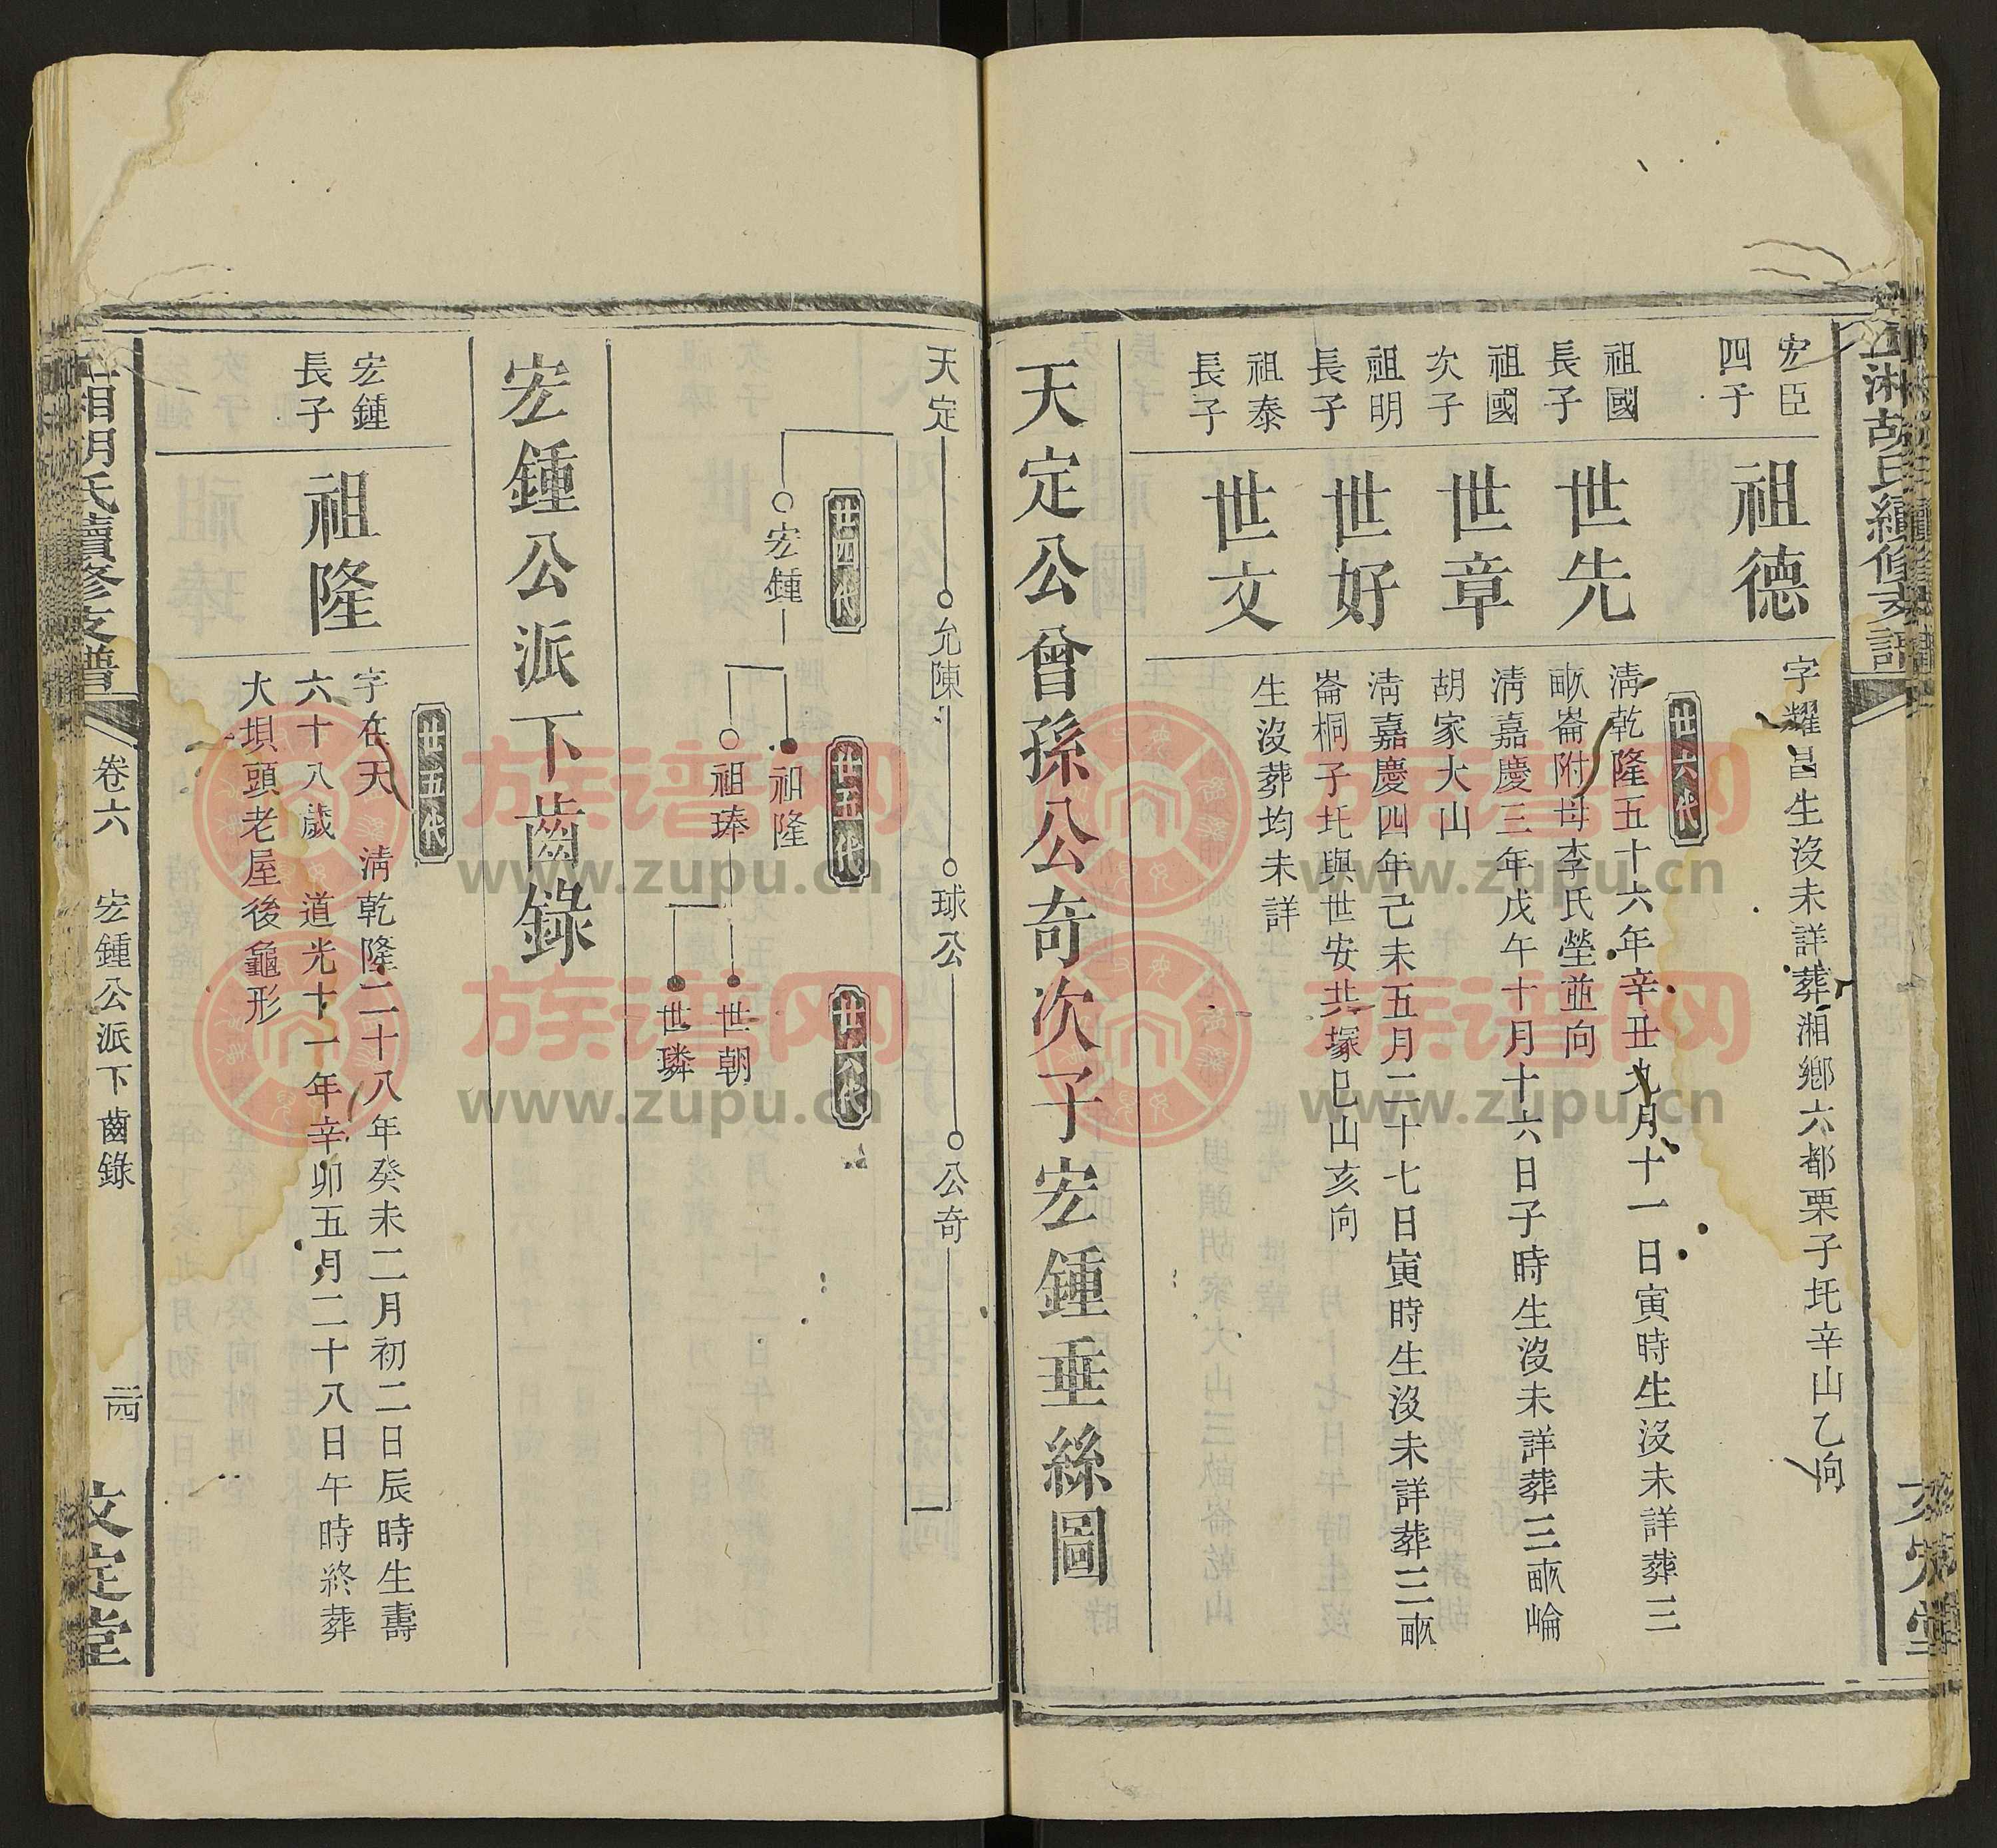 宏臣
四子
祖德
字耀昌生沒未詳葬湘鄉六都栗子圫辛山乙向
廿六代
祖國
長子
世先
清乾隆五十六年辛丑九月十一日寅時生沒未詳葬三
畝崙附母李氏塋並向
祖國
次子
世章
清嘉慶三年戊午十月十六日子時生沒未詳葬三畝崘
胡家大山
祖明
長子
世好
清嘉慶四年己未五月二十七日寅時生沒未詳葬三畝
崙桐子圫與世安共塚巳山亥向
祖泰
長子
世文
生沒葬均未詳
天定公曾孫公奇次子宏鍾垂絲圖
天定
允陳
球公
公奇
廿四代
宏鍾
廿五代
祖隆
祖琫
廿六代
世朝
世璘
宏鍾公派下齒錄
廿五代
宏鍾
長子
祖隆
字在天 清乾隆二十八年癸未二月初二日辰時生壽
六十八歲 道光十一年辛卯五月二十八日午時終葬
大垻頭老屋後龜形
湘胡氏續修支譜
卷六
宏鍾公派下齒錄
文定堂
族谱网
www.zupu.cn
族谱网
www.zupu.cn
族谱网
www.zupu.cn
族谱网
www.zupu.cn